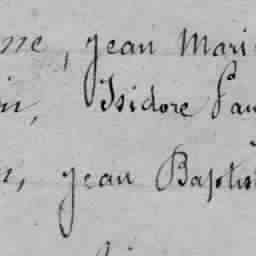 me, jean Mari
in, Isidore Pau
n, jean Baptis